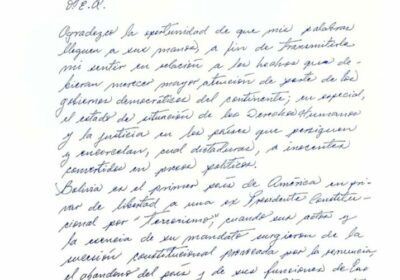 O.E.A.
Agradezco la oportunidad de que mis palabras
lleguen a sus manos, a fin de transmitirle
mi sentir en relación a los hechos que de-
bieran merecer mayor atención de parte de los
gobiernos democráticos del continente; en especial,
el estado de situación de los Derechos Humanos
y la justicia en los países que persiguen
y encarcelan, cual dictaduras, a inocentes
convertidos en presos políticos.
Bolivia es el primer país de América en pri-
var de libertad a una ex Presidenta Constitu-
cional por "Terrorismo", cuando sus actos y
la esencia de su mandato surgieron de la
sucesión constitucional provocada por la renuncia,
el abandono del país y de sus funciones de los